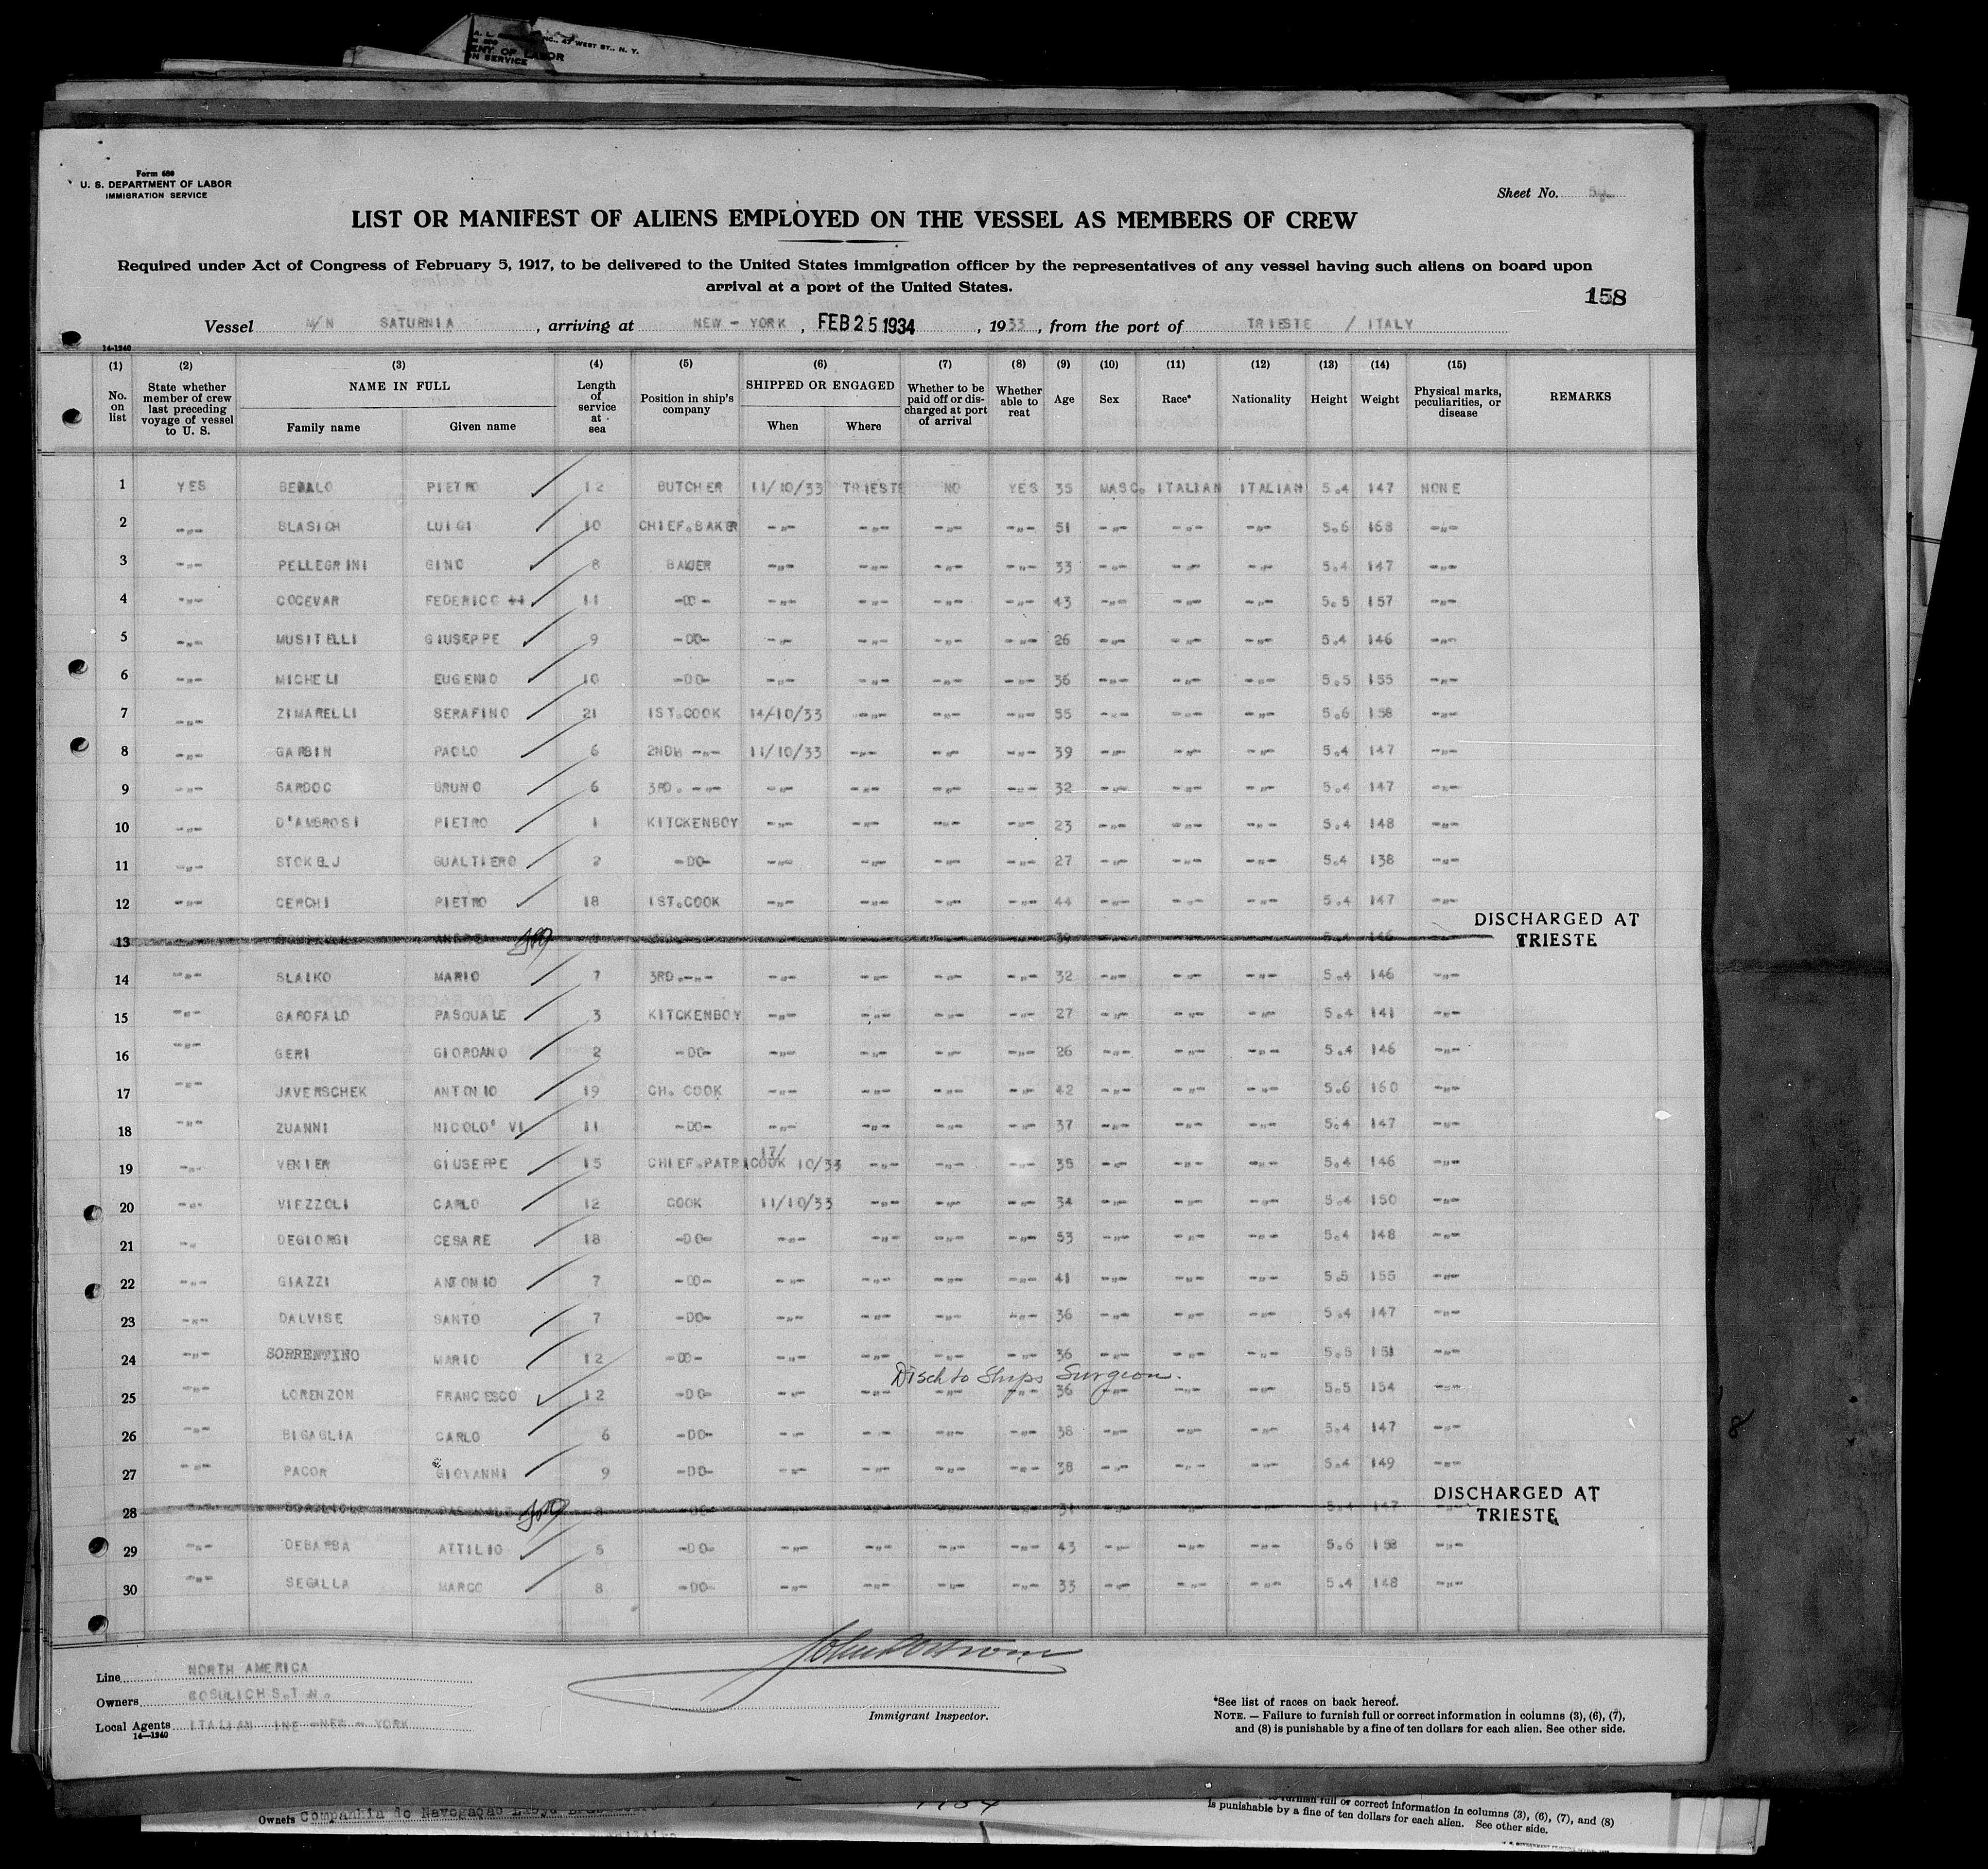 A. L.
INC., 47 WEST ST., N. Y.
ENT OF LABOR
ON SERVICE
Form 680
U. S. DEPARTMENT OF LABOR
IMMIGRATION SERVICE
Sheet No.
LIST OR MANIFEST OF ALIENS EMPLOYED ON THE VESSEL AS MEMBERS OF CREW
Required under Act of Congress of February 5, 1917, to be delivered to the United States immigration officer by the representatives of any vessel having such aliens on board upon
arrival at a port of the United States.
158
Vessel M/N SATURNIA, arriving at NEW - YORK, FEB 25 1934, 1933, from the port of TRIESTE / ITALY
14-1240
(1) (2) (3) (4) (5) (6) (7) (8) (9) (10) (11) (12) (13) (14) (15)
No. on list State whether member of crew last preceding voyage of vessel to U. S. NAME IN FULL Family name Given name Length of service at sea Position in ship's company SHIPPED OR ENGAGED When Where Whether to be paid off or discharged at port of arrival Whether able to reat Age Sex Race* Nationality Height Weight Physical marks, peculiarities, or disease REMARKS
1 YES BEDALO PIETRO 12 BUTCHER 11/10/33 TRIESTE NO YES 35 MASC. ITALIAN ITALIAN 5.4 147 NONE
2 -"- SLASICH LUIGI 10 CHIEF.BAKER -"- -"- -"- -"- 51 -"- -"- -"- 5.6 168 -"-
3 -"- PELLEGRINI GINO 8 BAKER -"- -"- -"- -"- 33 -"- -"- -"- 5.4 147 -"-
4 -"- COCEVAR FEDERICO 11 -DO- -"- -"- -"- -"- 43 -"- -"- -"- 5.5 157 -"-
5 -"- MUSITELLI GIUSEPPE 9 -DO- -"- -"- -"- -"- 26 -"- -"- -"- 5.4 146 -"-
6 -"- MICHELI EUGENIO 10 -DO- -"- -"- -"- -"- 36 -"- -"- -"- 5.5 155 -"-
7 -"- ZIMARELLI SERAFINO 21 IST.COOK 14/10/33 -"- -"- -"- 55 -"- -"- -"- 5.6 158 -"-
8 -"- GARBIN PAOLO 6 2ND -"- 11/10/33 -"- -"- -"- 39 -"- -"- -"- 5.4 147 -"-
9 -"- SARDOC BRUNO 6 3RD. -"- -"- -"- -"- -"- 32 -"- -"- -"- 5.4 147 -"-
10 -"- D'AMBROSI PIETRO 1 KITCKENBOY -"- -"- -"- -"- 23 -"- -"- -"- 5.4 148 -"-
11 -"- STOKELJ GUALTIERO 2 -DO- -"- -"- -"- -"- 27 -"- -"- -"- 5.4 138 -"-
12 -"- CERCHI PIETRO 18 IST.COOK -"- -"- -"- -"- 44 -"- -"- -"- 5.4 147 -"-
13 39 5.4 146 DISCHARGED AT
TRIESTE
14 -"- SLAIKO MARIO 7 3RD.-"- -"- -"- -"- -"- 32 -"- -"- -"- 5.4 146 -"-
15 -"- GAROFALO PASQUALE 3 KITCKENBOY -"- -"- -"- -"- 27 -"- -"- -"- 5.4 141 -"-
16 -"- GERI GIORDANO 2 -DO- -"- -"- -"- -"- 26 -"- -"- -"- 5.4 146 -"-
17 -"- JAVERSCHEK ANTONIO 19 CH. COOK -"- -"- -"- -"- 42 -"- -"- -"- 5.6 160 -"-
18 -"- ZUANNI NICOLO' VI 11 -DO- -"- -"- -"- -"- 37 -"- -"- -"- 5.4 147 -"-
19 -"- VENIER GIUSEPPE 15 CHIEF.PATR COOK 17/10/33 -"- -"- -"- 35 -"- -"- -"- 5.4 146 -"-
20 -"- VIEZZOLI CARLO 12 COOK 11/10/33 -"- -"- -"- 34 -"- -"- -"- 5.4 150 -"-
21 -"- DEGIORGI CESARE 18 -DO- -"- -"- -"- -"- 53 -"- -"- -"- 5.4 148 -"-
22 -"- GIAZZI ANTONIO 7 -DO- -"- -"- -"- -"- 41 -"- -"- -"- 5.5 155 -"-
23 -"- DALVISE SANTO 7 -DO- -"- -"- -"- -"- 36 -"- -"- -"- 5.4 147 -"-
24 -"- SORRENTINO MARIO 12 -DO- -"- -"- -"- -"- 36 -"- -"- -"- 5.5 151 -"-
Disch to Ships Surgeon.
25 -"- LORENZON FRANCESCO 12 -DO- -"- -"- -"- -"- 36 -"- -"- -"- 5.5 154 -"-
26 -"- BIGAGLIA CARLO 6 -DO- -"- -"- -"- -"- 38 -"- -"- -"- 5.4 147 -"-
27 -"- PACOR GIOVANNI 9 -DO- -"- -"- -"- -"- 38 -"- -"- -"- 5.4 149 -"-
28 -DO- 31 5.4 147 DISCHARGED AT
TRIESTE
29 -"- DEBARBA ATTILIO 5 -DO- -"- -"- -"- -"- 43 -"- -"- -"- 5.6 158 -"-
30 -"- SEGALLA MARCO 8 -DO- -"- -"- -"- -"- 33 -"- -"- -"- 5.4 148 -"-
8
Line NORTH AMERICA
Owners COSULICH S.T.N.
Local Agents ITALIAN LINE -NEW - YORK
14-1240
Immigrant Inspector.
*See list of races on back hereof.
NOTE. — Failure to furnish full or correct information in columns (3), (6), (7),
and (8) is punishable by a fine of ten dollars for each alien. See other side.
Owners Companhia de Navegaçao
1934
furnish full or correct information in columns (3), (6), (7), and (8)
is punishable by a fine of ten dollars for each alien. See other side.